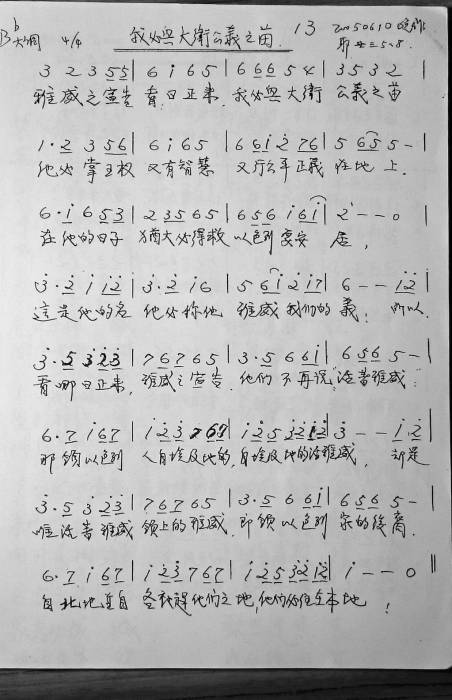 B♭大调 4/4 我必與大衛公義之苗 13 20050610
耶廿三5-8.
3 2 3 5 5 | 6 i 6 5 | 6 6 6 5 4 | 3 5 3 2 |
雅威之宣告 看,日正来, 我必與大衛 公義之苗
1·2 3 5 6 | 6 i 6 5 | 6 6 i 2 7 6 | 5 6 5 5 - |
他必掌王权 又有智慧 又行公平正義 在地上.
6·i 6 5 3 | 2 3 5 6 5 | 6 5 6 i 6 i | 2 - - 0 |
在他的日子 猶大必得救 以色列要安居,
3·2 i i 2 | 3·2 i 6 | 5 6 i 2 i 7 | 6 - - i 2 |
這是他的名 他必称他 雅威我們的義; 所以.
3·5 3 2 3 | 7 6 7 6 5 | 3·5 6 6 i | 6 5 6 5 - |
看哪日正来, 雅威之宣告. 他們不再说 活着雅威:
6·7 i 6 7 | i 2 3 7 6 7 | i 2 5 3 2 1 2 | 3 - - i·2 |
那领以色列 人自埃及地的, 自埃及地的活雅威, 却是
3·5 3 2 3 | 7 6 7 6 5 | 3·5 6 6 i | 6 5 6 5 - |
唯活着雅威 领上的雅威. 即领以色列 家的後裔.
6·7 i 6 7 | i 2 3 7 6 7 | i 2 5 3 2 1 2 | i - - 0 ‖
自北地並自 各 他們之地, 他們必住在本地!